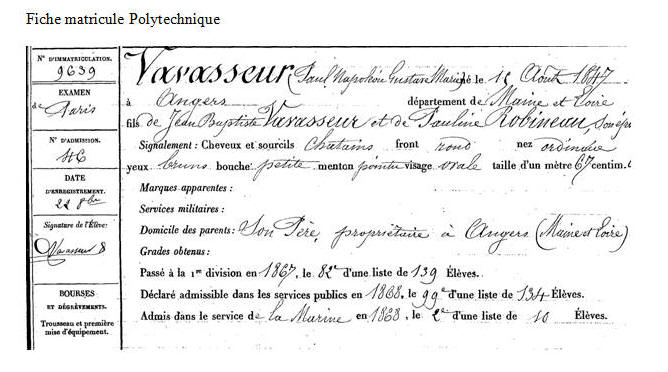 Fiche matricule Polytechnique
N° D'IMMATRICULATION.
9639
EXAMEN
de Paris
N° D'ADMISSION.
46
DATE
D'ENREGISTREMENT.
22 8bre
Signature de l'Élève:
Vavasseur
BOURSES
ET DÉGRÈVEMENTS.
Trousseau et première
mise d'équipement.
Vavasseur (Paul Napoléon Gustave Marie) né le 15 Août 1847
à Angers département de Maine et Loire
fils de Jean Baptiste Vavasseur et de Pauline Robineau, son
Signalement : Cheveux et sourcils chatains front rond nez ordinaire
yeux bruns bouche petite menton pointu visage ovale taille d'un mètre 67 centim.
Marques apparentes :
Services militaires :
Domicile des parents: Son Père, propriétaire à Angers (Maine et Loire)
Grades obtenus :
Passé à la 1re division en 1867, le 82e d'une liste de 139 Élèves.
Déclaré admissible dans les services publics en 1868, le 99e d'une liste de 134 Élèves.
Admis dans le service de la Marine en 1868, le 2e d'une liste de 10 Élèves.